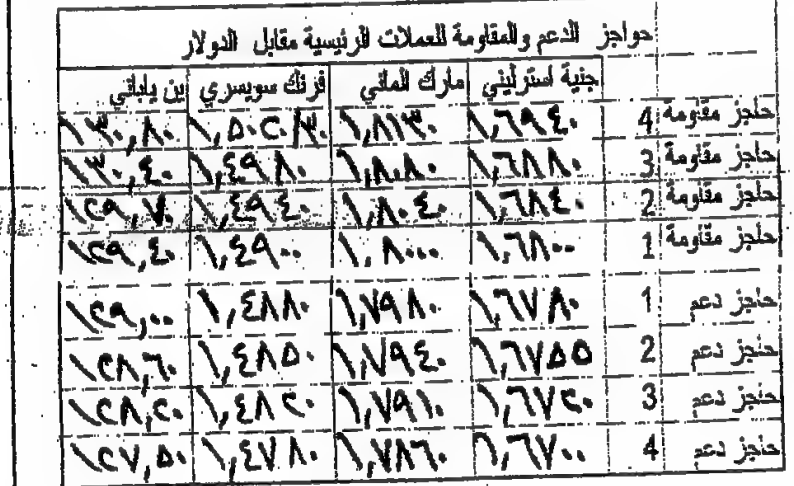 حواجز الدعم والمقاومة للعملات الرئيسية مقابل الدولار
جنية استرليني مارك الماني فرنك سويسري ين ياباني
حاجز مقاومة 4 ١,٦٩٤٠ ١,٨١٣٠ ١,٥٠٢٠/٣٠ ١٣٠,٨٠
حاجز مقاومة 3 ١,٦٨٨٠ ١,٨٠٨٠ ١,٤٩٨٠ ١٣٠,٤٠
حاجز مقاومة 2 ١,٦٨٤٠ ١,٨٠٤٠ ١,٤٩٤٠ ١٢٩,٧٠
حاجز مقاومة 1 ١,٦٨٠٠ ١,٨٠٠٠ ١,٤٩٠٠ ١٢٩,٤٠
حاجز دعم 1 ١,٦٧٨٠ ١,٧٩٨٠ ١,٤٨٨٠ ١٢٩,٠٠
حاجز دعم 2 ١,٦٧٥٥ ١,٧٩٤٠ ١,٤٨٥٠ ١٢٨,٦٠
حاجز دعم 3 ١,٦٧٢٠ ١,٧٩١٠ ١,٤٨٢٠ ١٢٨,٢٠
حاجز دعم 4 ١,٦٧٠٠ ١,٧٨٦٠ ١,٤٧٨٠ ١٢٧,٥٠